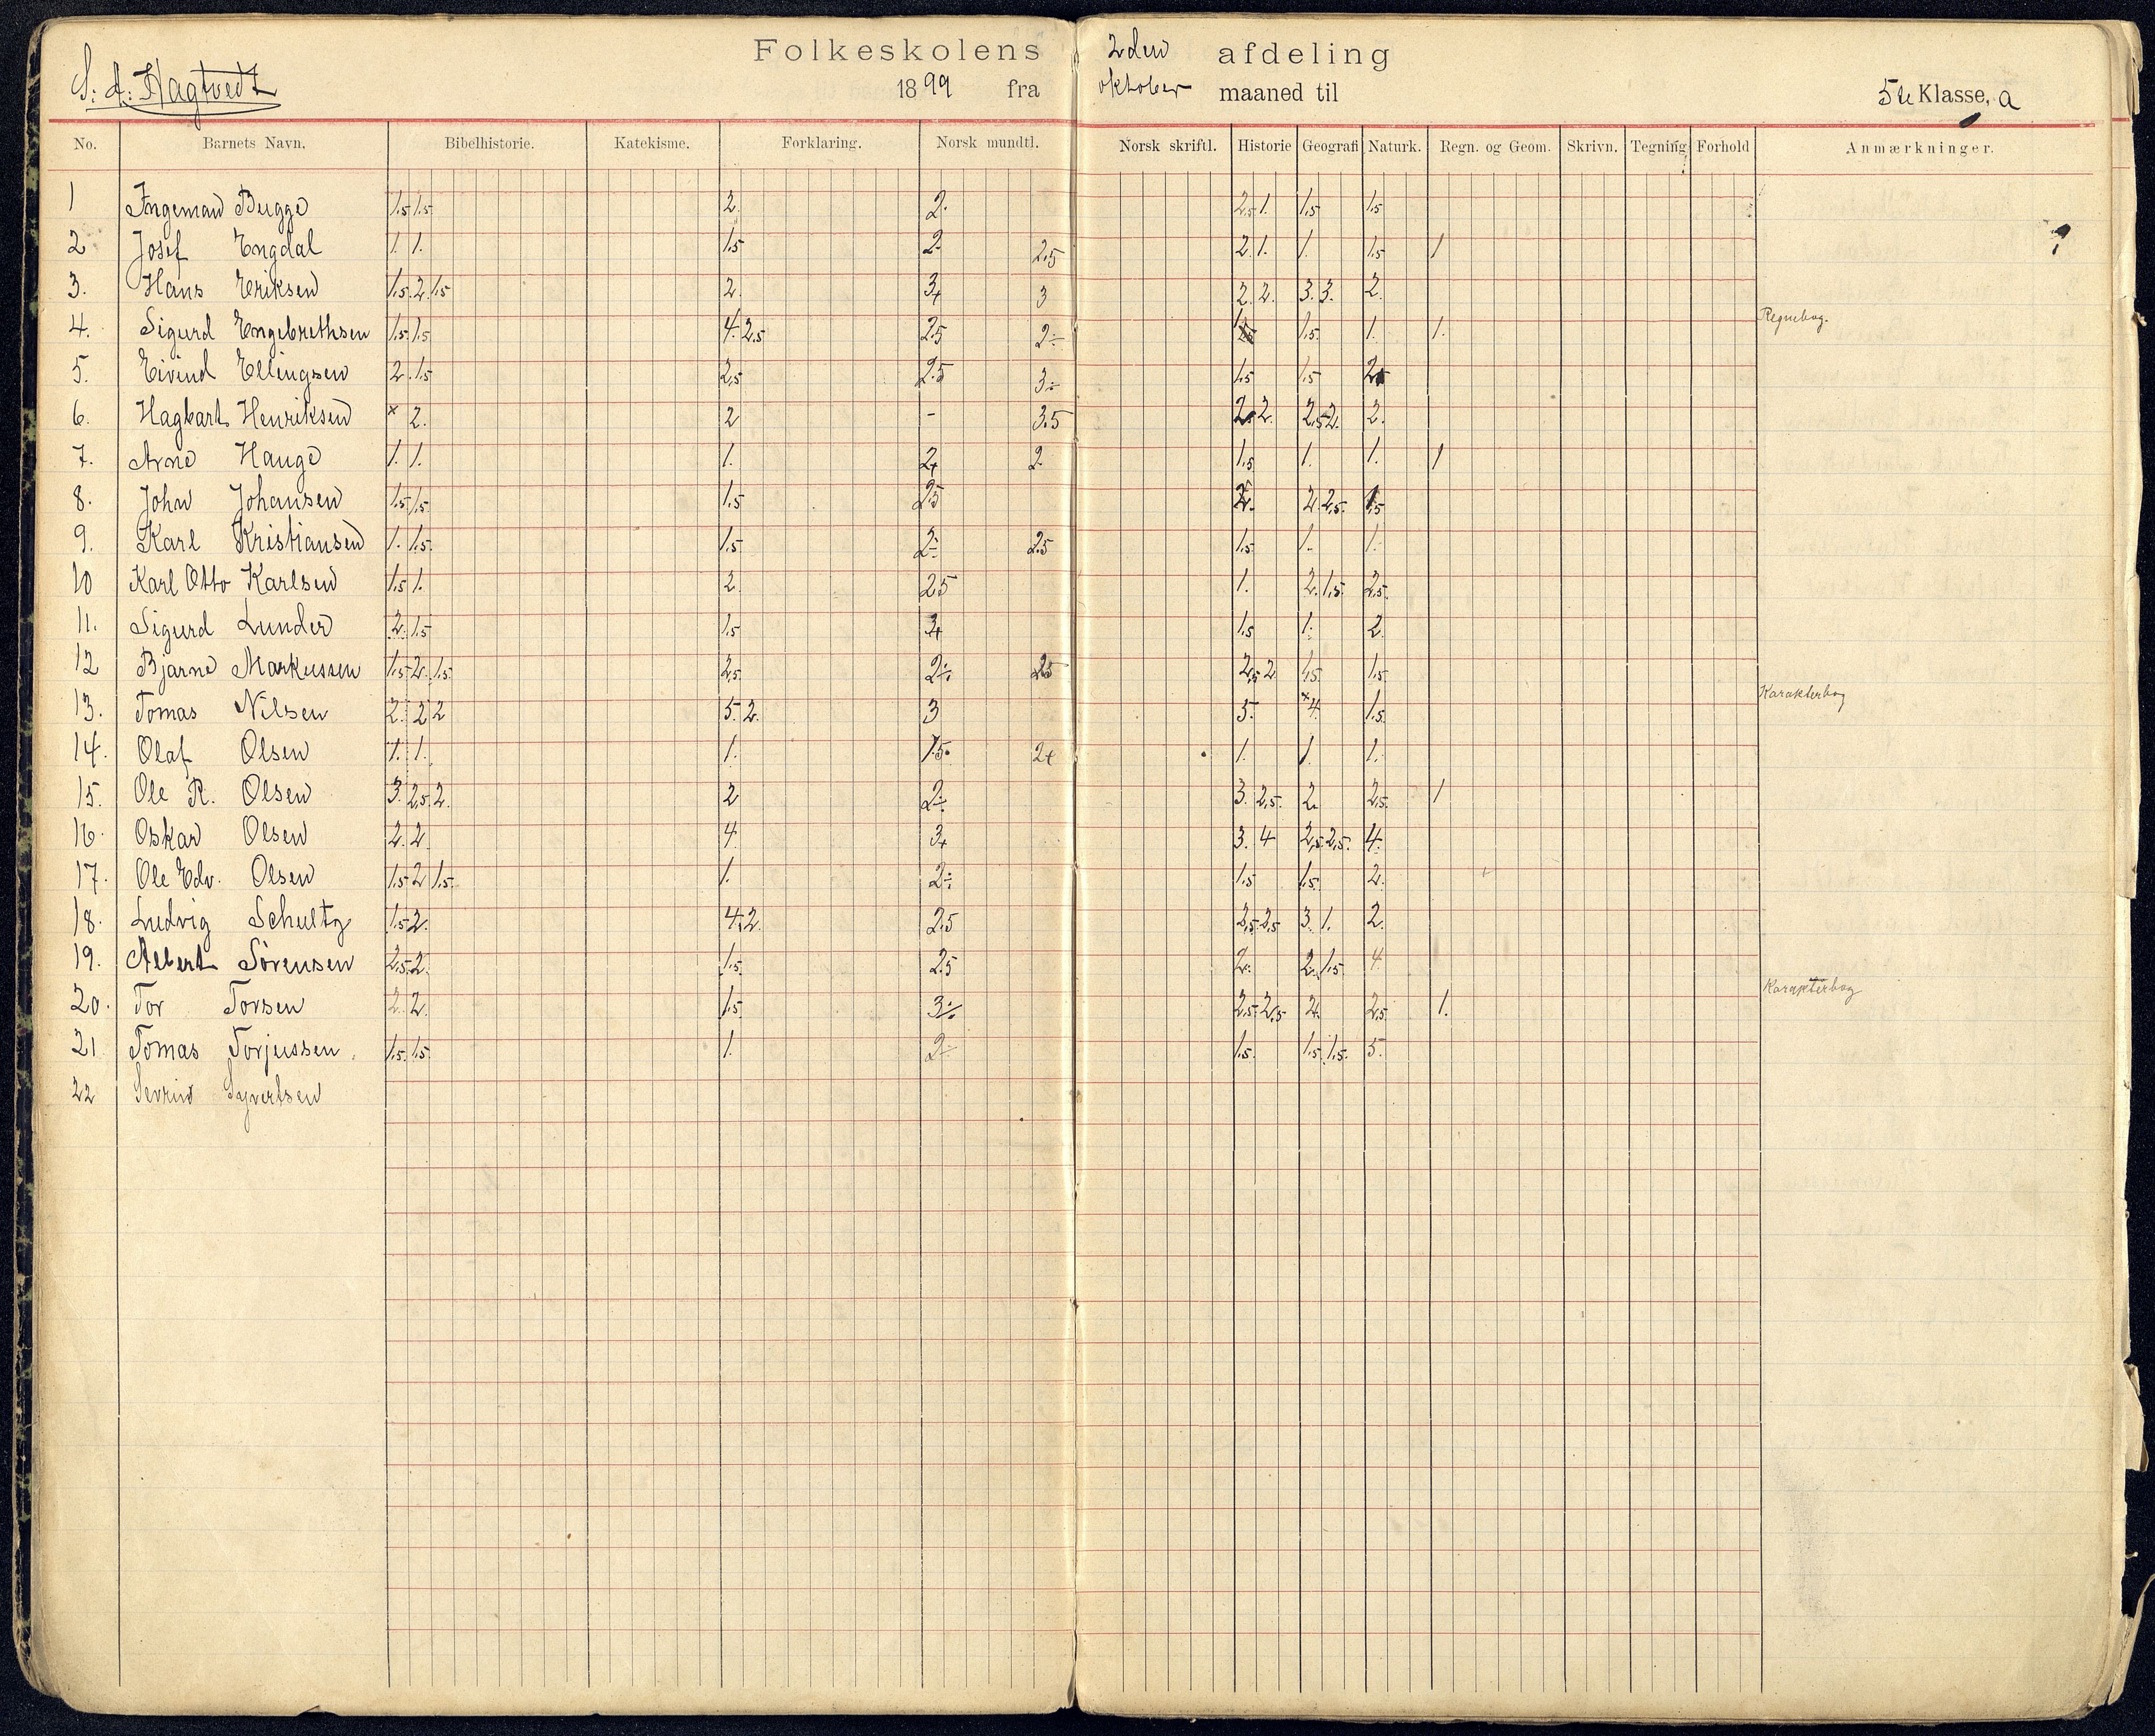 Folkeskolens 2den afdeling
S. A. Hagtvedt
1899 fra oktober maaned til 5te Klasse, a
No. Barnets Navn. Bibelhistorie. Katekisme. Forklaring. Norsk mundtl. Norsk skriftl. Historie Geografi Naturk. Regn. og Geom. Skrivn. Tegning Forhold Anmærkninger.
1 Ingeman Bugge 1.5 1.5 2. 2. 2.5 1. 1.5 1.5
2 Josef Engdal 1. 1. 1.5 2. 2.5 2. 1. 1. 1.5 1
3. Hans Eriksen 1.5. 2. 1.5 2. 3+ 3 2. 2. 3. 3. 2.
4. Sigurd Engebrethsen 1.5. 1.5 4. 2.5 2.5 2÷ 1.5. 1. 1. Regnebog.
5. Eivind Ellingsen 2. 1.5 2.5 2.5 3÷ 1.5 1.5 2
6. Hagbart Henriksen x 2. 2 - 3.5 2. 2. 2.5 2. 2.
7. Arne Hauge 1. 1. 1. 2+ 2. 1.5 1. 1. 1
8. John Johansen 1.5 1.5 1.5 2.5 2. 2. 2.5. 1.5
9. Karl Kristiansen 1. 1.5. 1.5 2÷ 2.5 1.5. 1. 1.
10 Karl Otto Karlsen 1.5 1. 2. 2.5 1. 2. 1.5. 2.5.
11. Sigurd Lunder 2. 1.5 1.5 3+ 1.5 1. 2.
12 Bjarne Markussen 1.5 2. 1.5 2.5 2÷ 2.5 2.5 2 1.5 1.5
13. Tomas Nilsen 2. 2 2 5. 2. 3 5. x 4. 1.5 Karakterbog
14. Olaf Olsen 1. 1. 1. 1.5. 2+ 1. 1. 1.
15. Ole R. Olsen 3. 2.5 2. 2 2÷ 3. 2.5. 2. 2.5. 1
16. Oskar Olsen 2. 2. 4. 3+ 3. 4 2.5 2.5. 4.
17. Ole Edv. Olsen 1.5 2 1.5. 1. 2÷ 1.5 1.5 2.
18. Ludvig Schultz 1.5 2. 4. 2. 2.5 2.5 2.5 3. 1. 2.
19. Albert Sörensen 2.5 2. 1.5 2.5 2. 2. 1.5 4.
20. Tor Torsen 2. 2. 1.5 3÷ 2.5. 2.5 2. 2.5 1. Karakterbog
21 Tomas Torjussen. 1.5. 1.5 1. 2÷ 1.5. 1.5 1.5. 5.
22 Sevrin Syvertsen